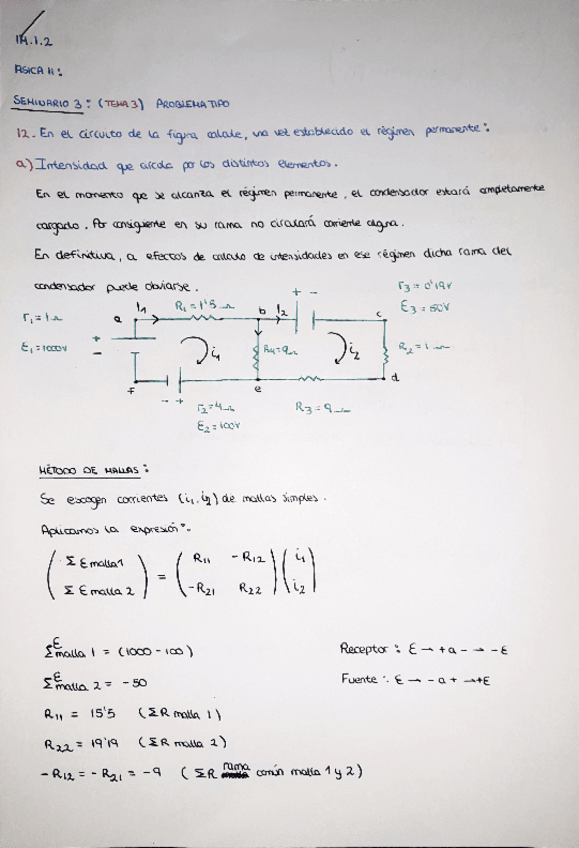 14.1.2
FISICA II:
SEMINARIO 3: (TEMA 3) PROBLEMA TIPO
12.- En el circuito de la figura calcule, una vez establecido el régimen permanente:
a) Intensidad que circula por los distintos elementos.
En el momento que se alcanza el régimen permanente, el condensador estará completamente
cargado. Por consiguiente en su rama no circulará corriente alguna.
En definitiva, a efectos de calculo de intensidades en ese régimen dicha rama del
condensador puede obviarse.
r₃ = 0'19Ω
Ɛ₃ = 50V
+ -
r₁ = 1Ω
Ɛ₁ = 1000V
a
I₁
R₁ = 1'5Ω
b
I₂
c
+
-
i₁
R₄ = 9Ω
i₂
R₂ = 1Ω
f
e
d
- +
r₂ = 4Ω
Ɛ₂ = 100V
R₃ = 9Ω
MÉTODO DE MALLAS:
Se escogen corrientes (i₁, i₂) de mallas simples.
Aplicamos la expresión:
(Σ Ɛ malla 1) = (R₁₁ -R₁₂) (i₁)
(Σ Ɛ malla 2) (-R₂₁ R₂₂) (i₂)
ΣƐ malla 1 = (1000 - 100)
Receptor: Ɛ → + a - → -Ɛ
ΣƐ malla 2 = -50
Fuente: Ɛ → - a + → +Ɛ
R₁₁ = 15'5 (ΣR malla 1)
R₂₂ = 19'19 (ΣR malla 2)
-R₁₂ = -R₂₁ = -9 (ΣR rama común malla 1 y 2)